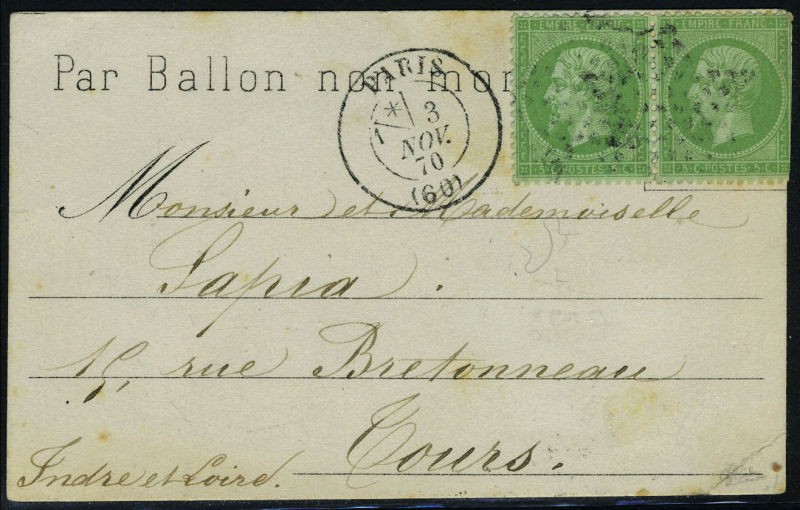 EMPIRE FRANC EMPIRE FRANC
Par Ballon non mon
PARIS
3
NOV.
70
(60)
5 C POSTES 5 C 5 C POSTES 5 C
Monsieur et Mademoiselle
Sapia.
15, rue Bretonneau
Tours.
Indre et Loire.